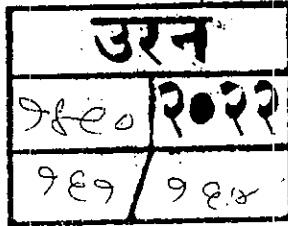 उरन
१४९० २०२२
१६१ / १६४